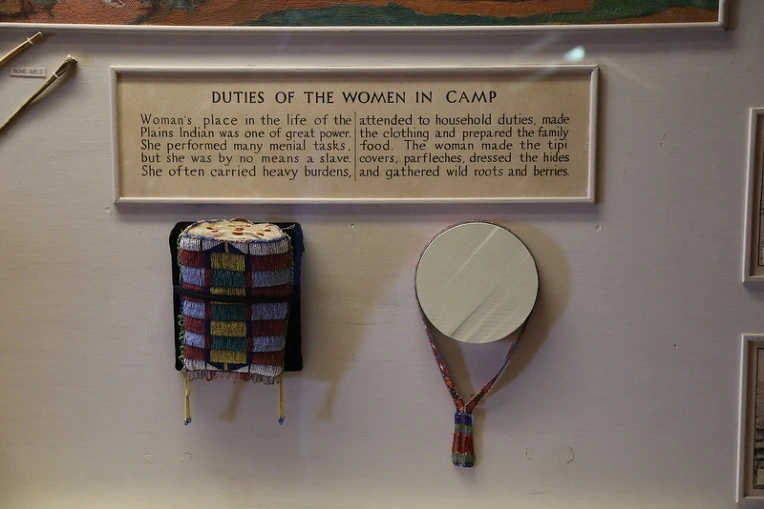 DUTIES OF THE WOMEN IN CAMP
Woman's place in the life of the
Plains Indian was one of great power.
She performed many menial tasks,
but she was by no means a slave.
She often carried heavy burdens,
attended to household duties, made
the clothing and prepared the family
food. The woman made the tipi
covers, parfleches, dressed the hides
and gathered wild roots and berries.